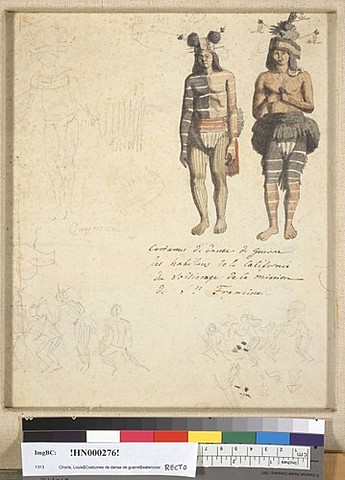 Costumes de danse de guerre
des habitans de la Californie
du voisinage de la mission
de Sn Francisco.
ImgBC: !HN000276!
1313 Choris, Louis&Costumes de danse de guerre&watercolor RECTO